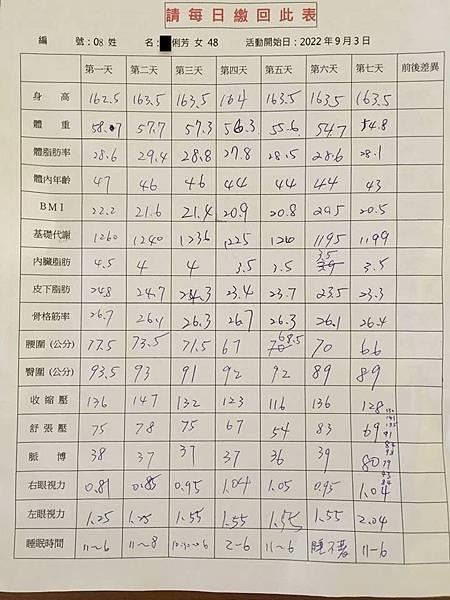 請每日繳回此表
編 號：08 姓 名： 俐芳 女 48 活動開始日：2022年9月3日
第一天 第二天 第三天 第四天 第五天 第六天 第七天 前後差異
身 高 162.5 163.5 163.5 164 163.5 163.5 163.5
體 重 57.7 57.3 56.3 55.6 54.7 54.8
體脂肪率 28.6 29.4 28.8 27.8 28.5 28.6 28.1
體內年齡 47 46 46 44 44 44 43
BMI 22.2 21.6 21.4 20.9 20.8 20.5
基礎代謝 1260 1240 1236 1225 1195 1199
內臟脂肪 4.5 4 4 3.5 3.5 3.5 3.5
皮下脂肪 24.8 24.7 24.3 23.4 23.7 23.5 23.3
骨格筋率 26.7 26.1 26.3 26.7 26.3 26.1 26.4
腰圍 (公分) 77.5 73.5 71.5 67 68.5 70 66
臀圍 (公分) 93.5 93 91 92 92 89 89
收 縮 壓 136 147 132 123 116 136 128
舒 張 壓 75 78 75 67 54 83 69
脈 博 38 37 37 37 36 39 80
右眼視力 0.81 0.85 0.95 1.04 1.05 0.95 1.04
左眼視力 1.25 1.25 1.55 1.55 1.55 1.55 2.04
睡眠時間 11~6 11~8 2-6 11~6 睡不著 11-6